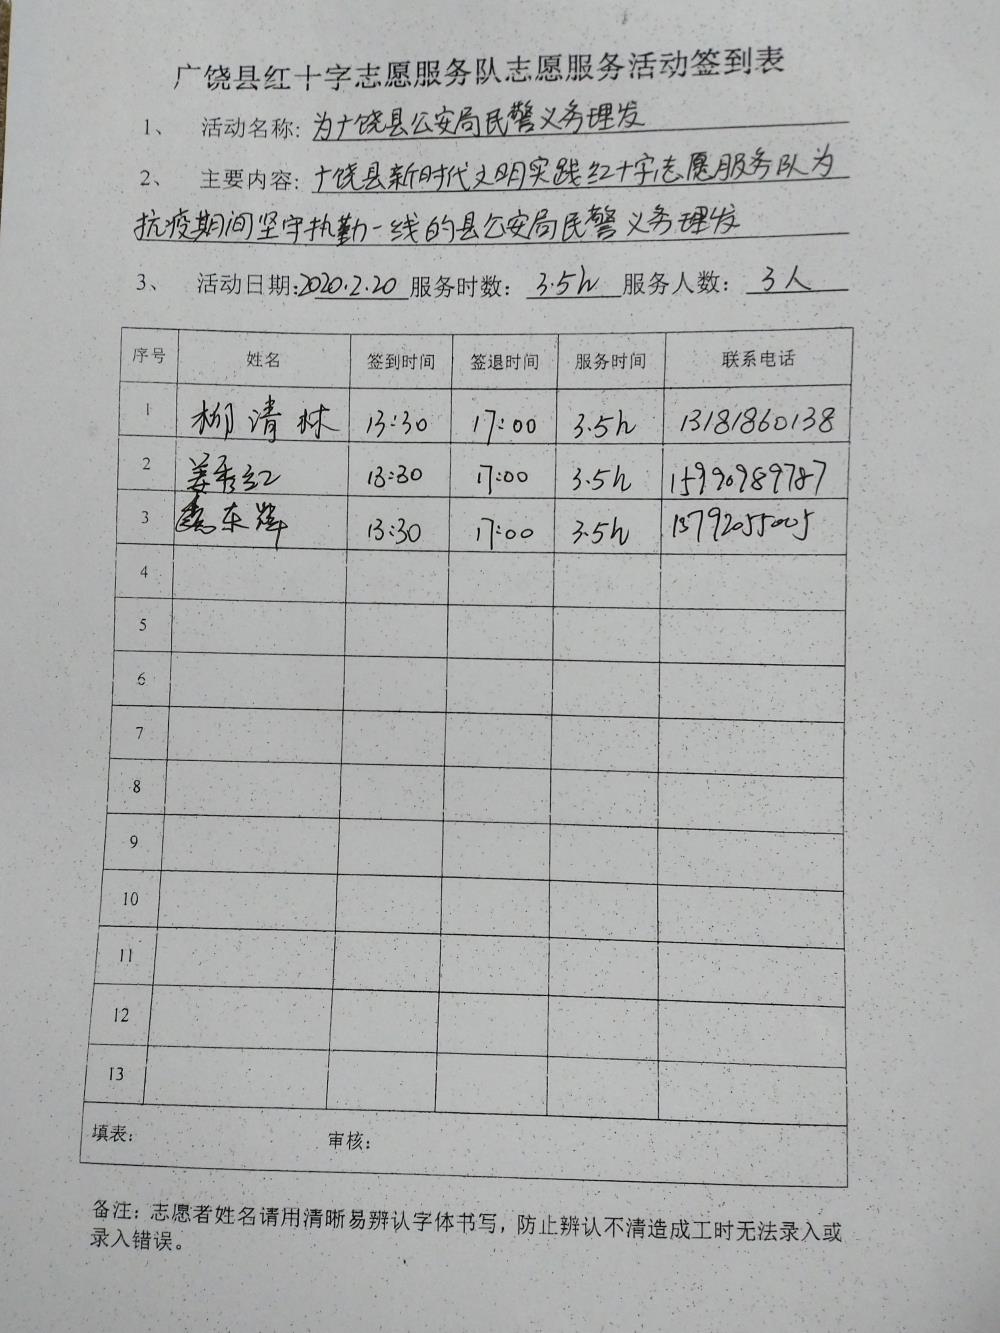 广饶县红十字志愿服务队志愿服务活动签到表
1、 活动名称: 为广饶县公安局民警义务理发
2、 主要内容: 广饶县新时代文明实践红十字志愿服务队为
抗疫期间坚守执勤一线的县公安局民警义务理发
3、 活动日期: 2020.2.20 服务时数: 3.5h 服务人数: 3人
序号 姓名 签到时间 签退时间 服务时间 联系电话
1 柳清林 13:30 17:00 3.5h 13181860138
2 姜秀红 13:30 17:00 3.5h 15990989787
3 东辉 13:30 17:00 3.5h 13792055005
4
5
6
7
8
9
10
11
12
13
填表: 审核:
备注: 志愿者姓名请用清晰易辨认字体书写，防止辨认不清造成工时无法录入或
录入错误。